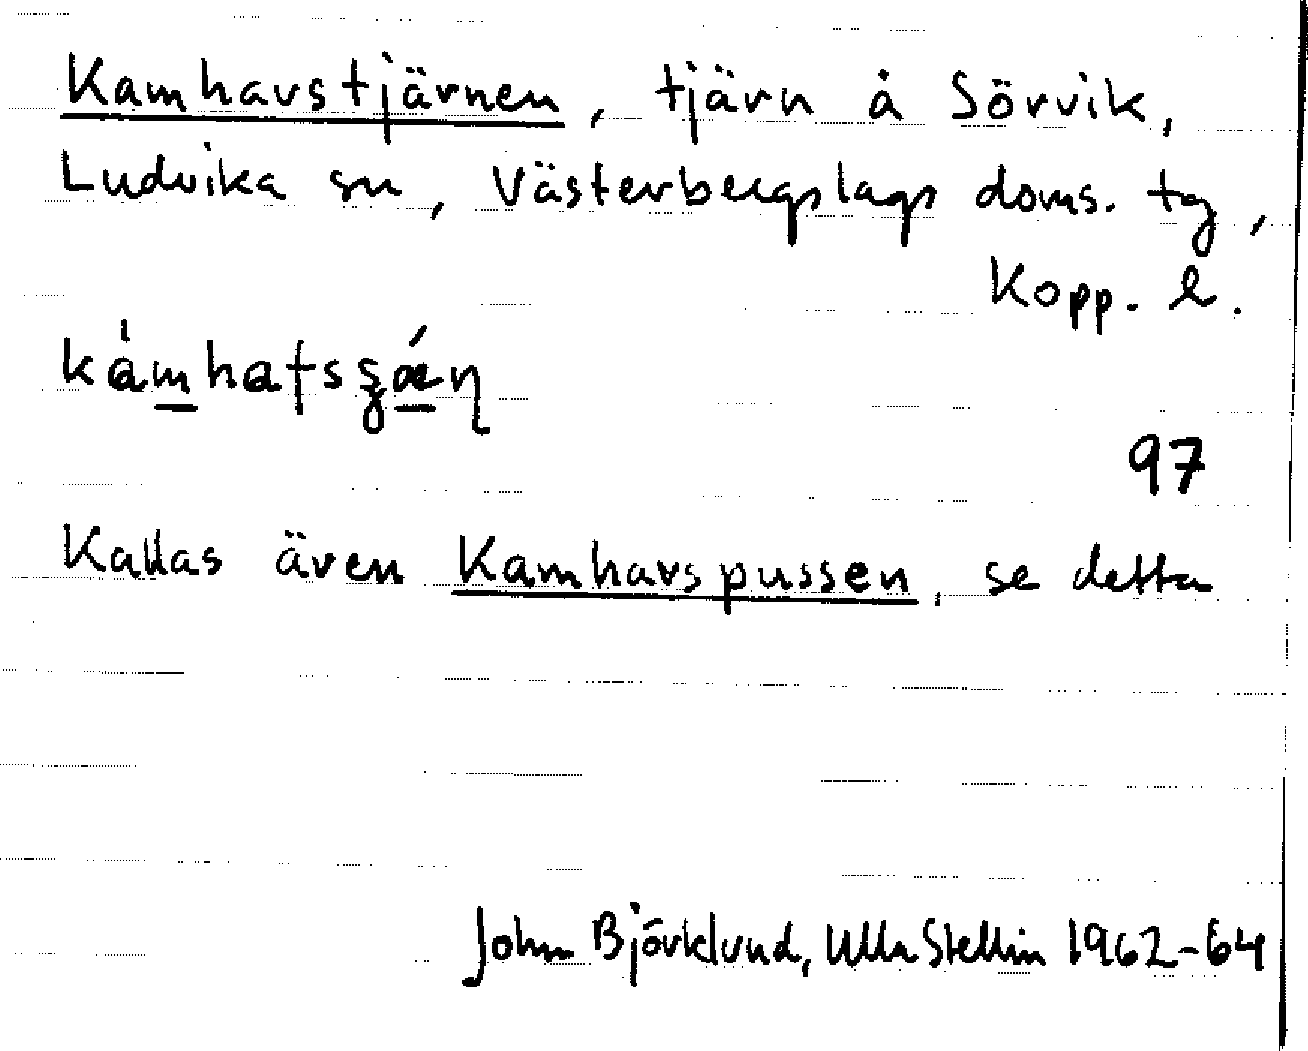 Kamhavstjärnen, tjärn å Sörvik,
Ludvika sn, Västerbergslags doms. tg,
Kopp. l.
97
Kallas även Kamhavspussen, se detta
John Björklund, Ulla Stellin 1962-64